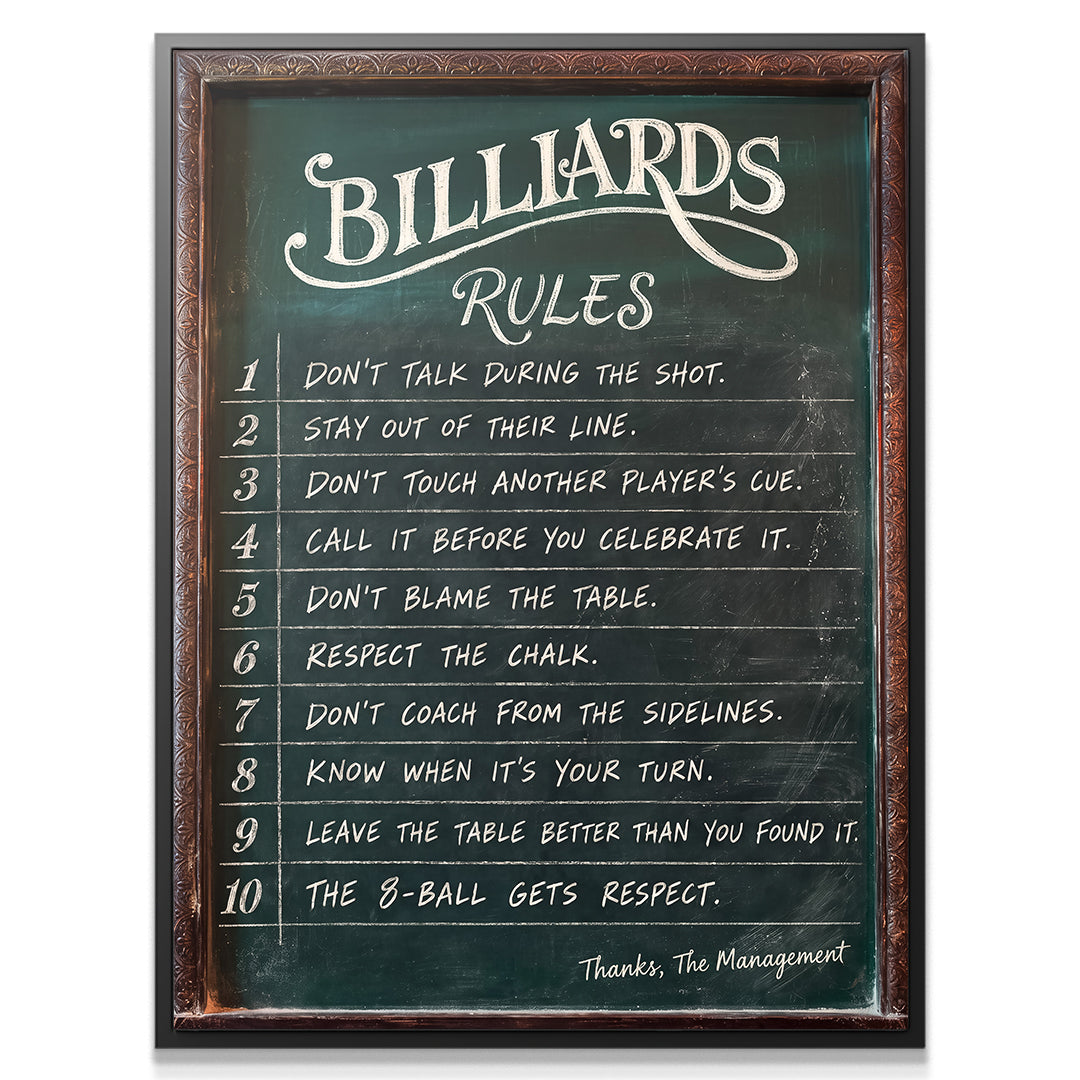 BILLIARDS
RULES
1 DON'T TALK DURING THE SHOT.
2 STAY OUT OF THEIR LINE.
3 DON'T TOUCH ANOTHER PLAYER'S CUE.
4 CALL IT BEFORE YOU CELEBRATE IT.
5 DON'T BLAME THE TABLE.
6 RESPECT THE CHALK.
7 DON'T COACH FROM THE SIDELINES.
8 KNOW WHEN IT'S YOUR TURN.
9 LEAVE THE TABLE BETTER THAN YOU FOUND IT.
10 THE 8-BALL GETS RESPECT.
Thanks, The Management